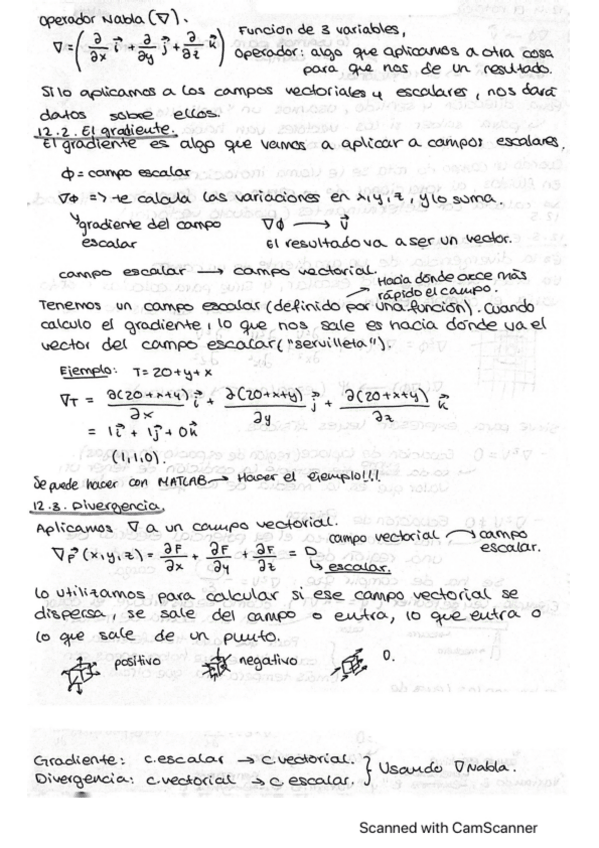 Operador Nabla (∇).
∇ = (∂/∂x i⃗ + ∂/∂y j⃗ + ∂/∂z k⃗) Función de 3 variables,
Operador: algo que aplicamos a otra cosa
para que nos de un resultado.
Si lo aplicamos a los campos vectoriales y escalares, nos dará
datos sobre ellos.
12.2. El gradiente.
El gradiente es algo que vamos a aplicar a campos escalares.
φ = campo escalar
∇φ => te calcula las variaciones en x, y, z, y lo suma.
gradiente del campo ∇φ → v⃗
escalar El resultado va a ser un vector.
campo escalar → campo vectorial.
Hacia dónde crece más
rápido el campo.
Tenemos un campo escalar (definido por una función). Cuando
calculo el gradiente, lo que nos sale es hacia donde va el
vector del campo escalar ("servilleta").
Ejemplo: T = 20 + y + x
∇T = ∂(20+x+y)/∂x i⃗ + ∂(20+x+y)/∂y j⃗ + ∂(20+x+y)/∂z k⃗
= 1i⃗ + 1j⃗ + 0k⃗
(1,1,0).
Se puede hacer con MATLAB → Hacer el ejemplo!!!.
12.3. Divergencia.
Aplicamos ∇ a un campo vectorial.
∇F⃗ (x,y,z) = ∂F/∂x + ∂F/∂y + ∂F/∂z = D campo vectorial → campo
escalar.
↳ escalar.
Lo utilizamos para calcular si ese campo vectorial se
dispersa, se sale del campo o entra, lo que entra o
lo que sale de un punto.
positivo negativo 0.
Gradiente: c.escalar → c.vectorial. } Usando ∇ Nabla.
Divergencia: c.vectorial → c.escalar.
Scanned with CamScanner